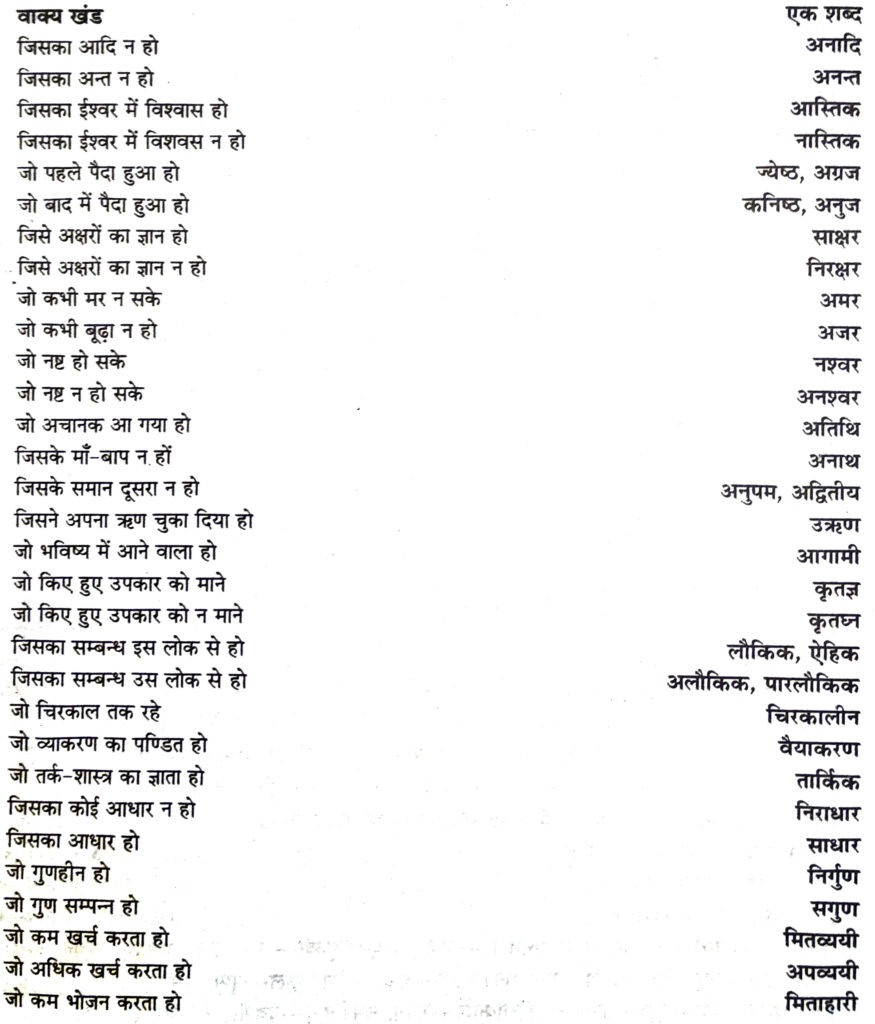 वाक्य खंड एक शब्द
जिसका आदि न हो अनादि
जिसका अन्त न हो अनन्त
जिसका ईश्वर में विश्वास हो आस्तिक
जिसका ईश्वर में विशवस न हो नास्तिक
जो पहले पैदा हुआ हो ज्येष्ठ, अग्रज
जो बाद में पैदा हुआ हो कनिष्ठ, अनुज
जिसे अक्षरों का ज्ञान हो साक्षर
जिसे अक्षरों का ज्ञान न हो निरक्षर
जो कभी मर न सके अमर
जो कभी बूढ़ा न हो अजर
जो नष्ट हो सके नश्वर
जो नष्ट न हो सके अनश्वर
जो अचानक आ गया हो अतिथि
जिसके माँ-बाप न हों अनाथ
जिसके समान दूसरा न हो अनुपम, अद्वितीय
जिसने अपना ऋण चुका दिया हो उऋण
जो भविष्य में आने वाला हो आगामी
जो किए हुए उपकार को माने कृतज्ञ
जो किए हुए उपकार को न माने कृतघ्न
जिसका सम्बन्ध इस लोक से हो लौकिक, ऐहिक
जिसका सम्बन्ध उस लोक से हो अलौकिक, पारलौकिक
जो चिरकाल तक रहे चिरकालीन
जो व्याकरण का पण्डित हो वैयाकरण
जो तर्क-शास्त्र का ज्ञाता हो तार्किक
जिसका कोई आधार न हो निराधार
जिसका आधार हो साधार
जो गुणहीन हो निर्गुण
जो गुण सम्पन्न हो सगुण
जो कम खर्च करता हो मितव्ययी
जो अधिक खर्च करता हो अपव्ययी
जो कम भोजन करता हो मिताहारी